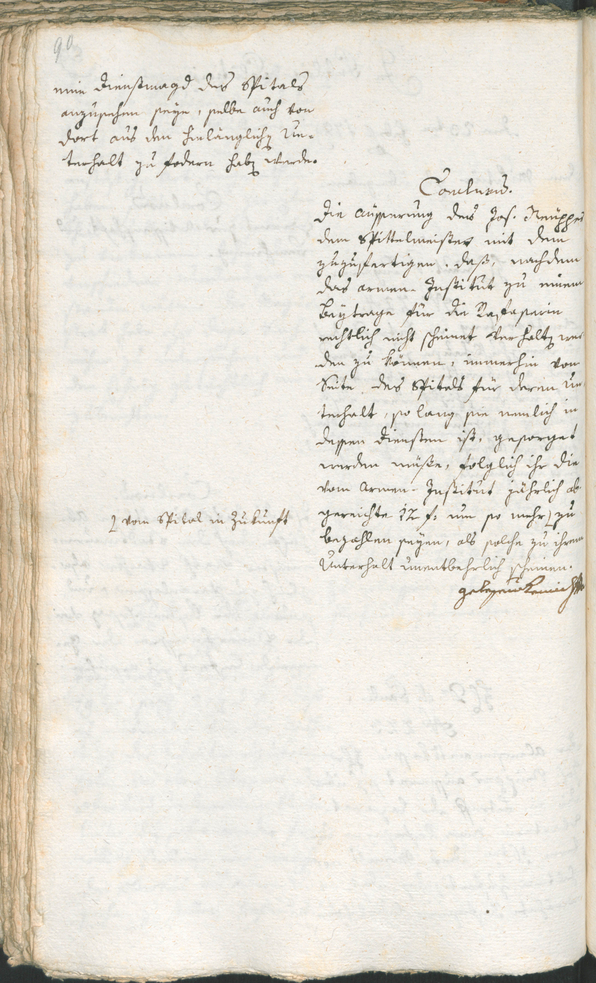 90
eine Dienstmagd des Spitals
anzusehen seye, selbe auch von
dort aus den hinlänglichen Un-
terhalt zu fodern haben werde.
Conclusum.
Die Äusserung des Jos.
dem Spittelmeister mit dem
zuzufertigen, daß, nachdem
das Armen-Institut zu einem
Beytrage für die
rechtlich nicht scheinet verhalten wer
den zu können, immerhin von
Seite des Spitals für deren Un
terhalt, so lang sie nemlich in
dessen Diensten ist, gesorget
werden müße, folglich ihr die
vom Armen-Institut jährlich ab
gereichte 12 f. um so mehr zu
bezahlen seyen, als solche zu ihrem
Unterhalt unentbehrlich scheinen.
vom Spital in Zukunft